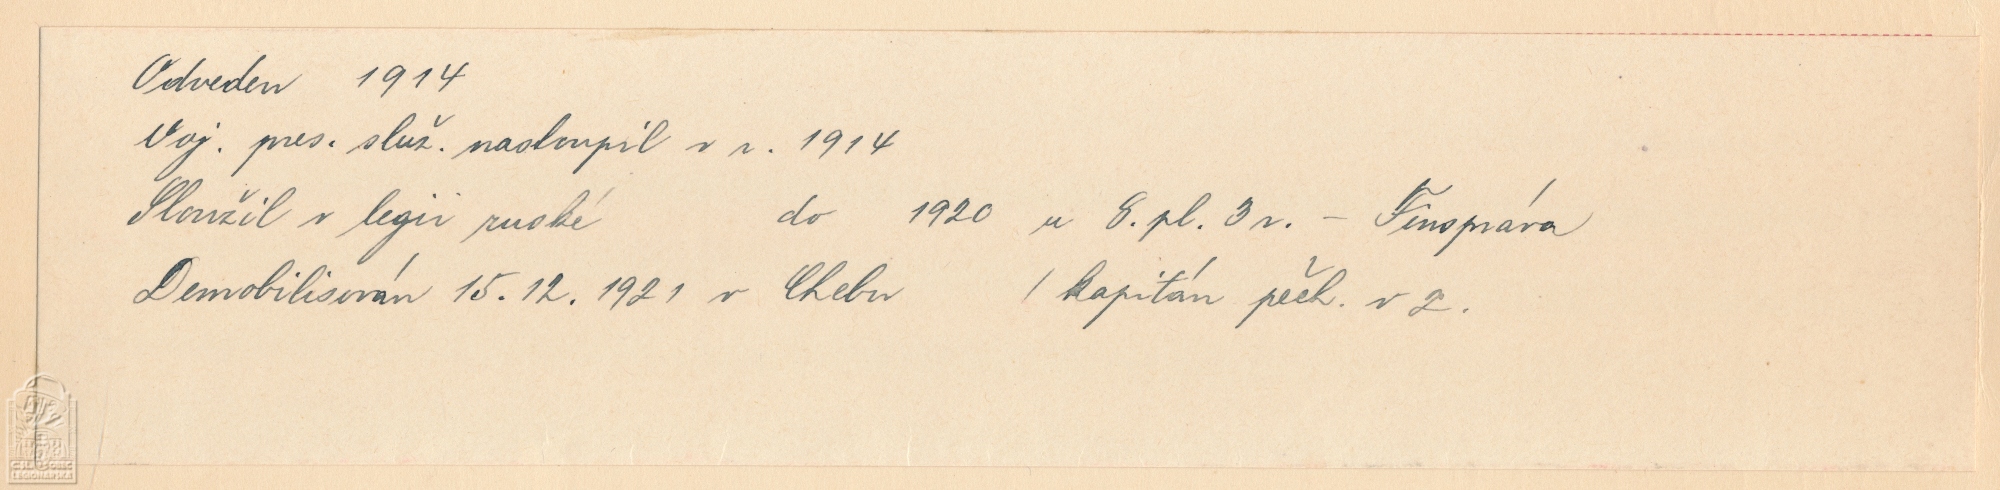 Odveden 1914
Voj. pres. služ. nastoupil v r. 1914
Sloužil v legii ruské do 1920 u 8. pl. 3 r. – Finspráva
Demobilisován 15. 12. 1921 v Chebu / kapitán pěch. v z.